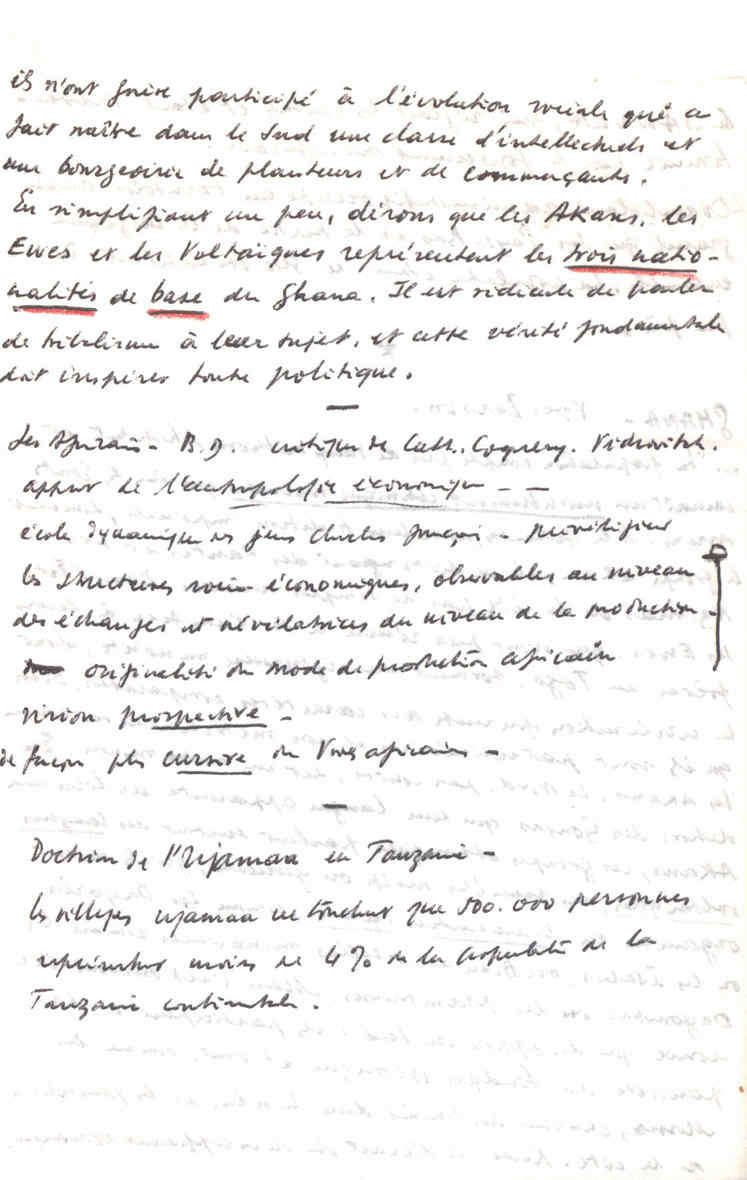 ils n'ont guère participé à l'évolution sociale qui a
fait naître dans le Sud une classe d'intellectuels et
une bourgeoisie de planteurs et de commerçants.
En simplifiant un peu, disons que les Akans, les
Ewes et les Voltaïques représentent les trois natio-
nalités de base du Ghana. Il est ridicule de parler
de tribalisme à leur sujet, et cette vérité fondamentale
doit inspirer toute politique.
Les Africains - B.D. critique de Cath. Coquery. Vidrovitch.
apport de l'anthropologie économique - -
école dynamique des jeunes chercheurs français - privilégient
les structures socio-économiques, observables au niveau
des échanges et révélatrices du niveau de la production -
originalité du mode de production africain
vision prospective -
de façon plus cursive
Doctrine de l'Ujamaa en Tanzanie -
les villages ujamaa ne touchent que 500.000 personnes
représentant moins de 4% de la population de la
Tanzanie continentale.